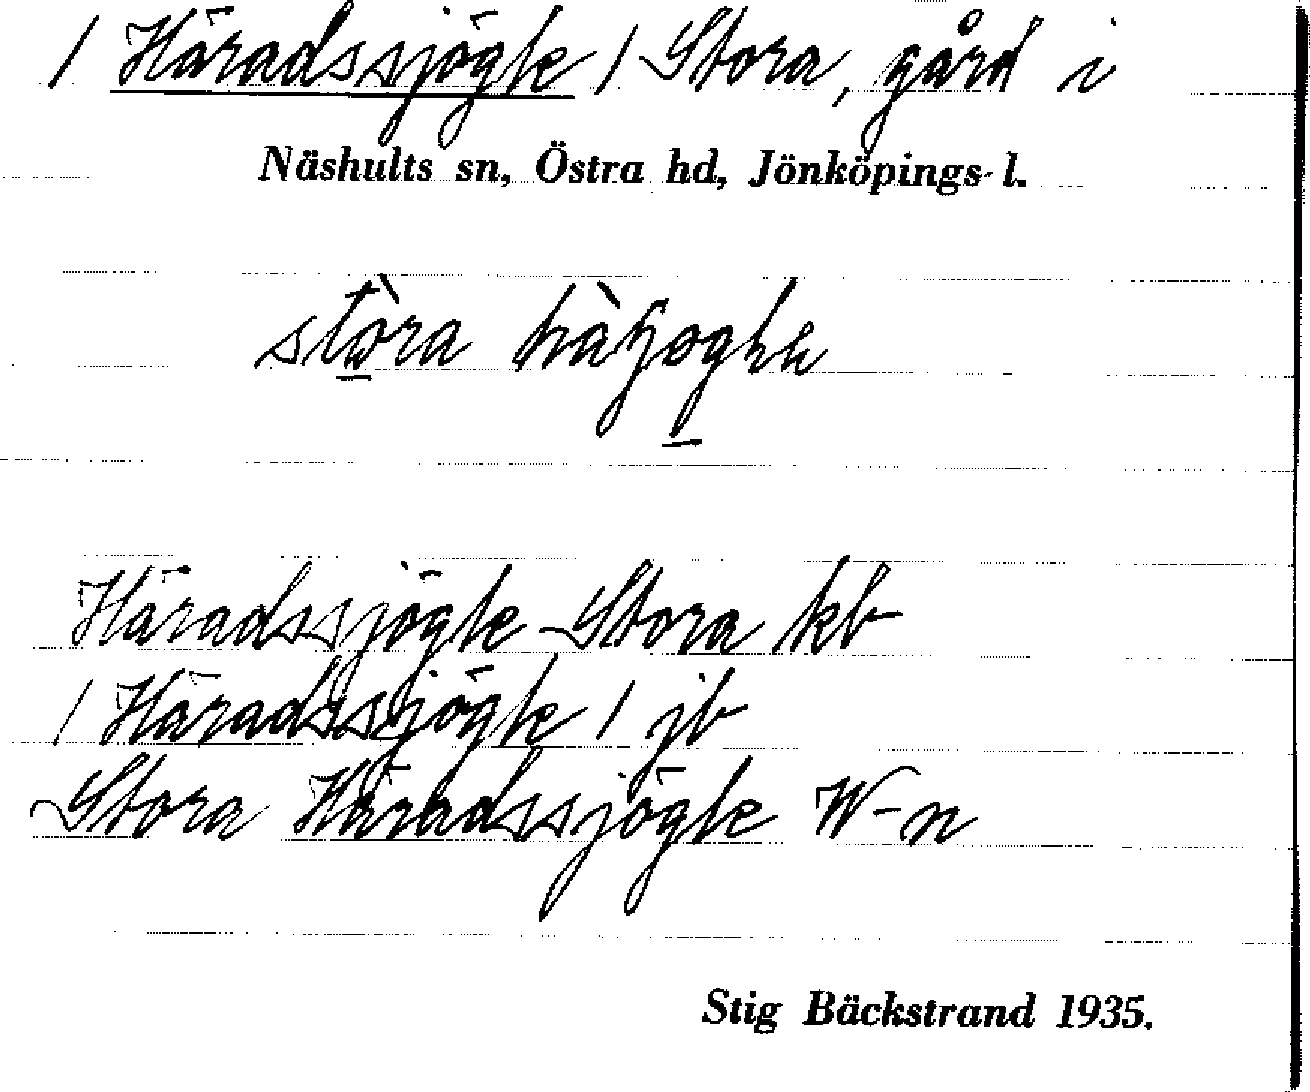 / Häradssjögle / Stora, gård i
Näshults sn, Östra hd, Jönköpings l.
stòra
Häradssjögle Stora kb
/ Häradssjögle / jb
Stora Häradssjögle W-n
Stig Bäckstrand 1935.